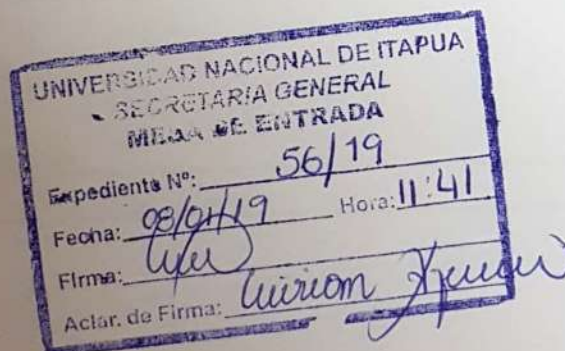 UNIVERSIDAD NACIONAL DE ITAPUA
SECRETARIA GENERAL
MESA DE ENTRADA
Expediente Nº: 56/19
Fecha: 08/01/19 Hora: 11:41
Firma:
Aclar. de Firma: